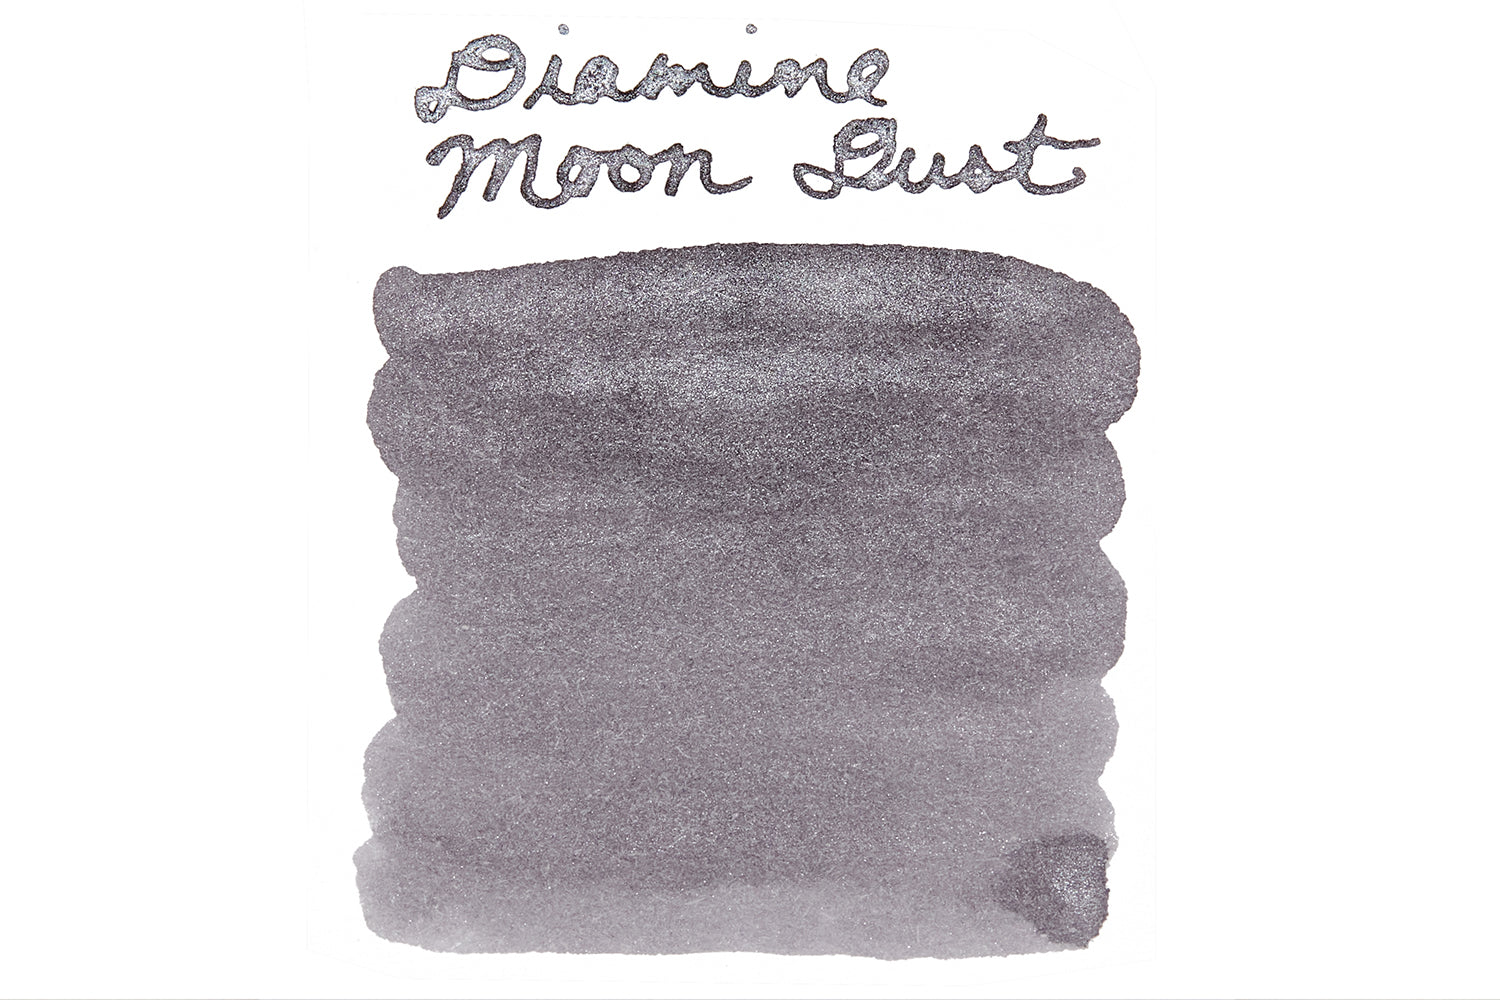 Diamine
Moon Dust